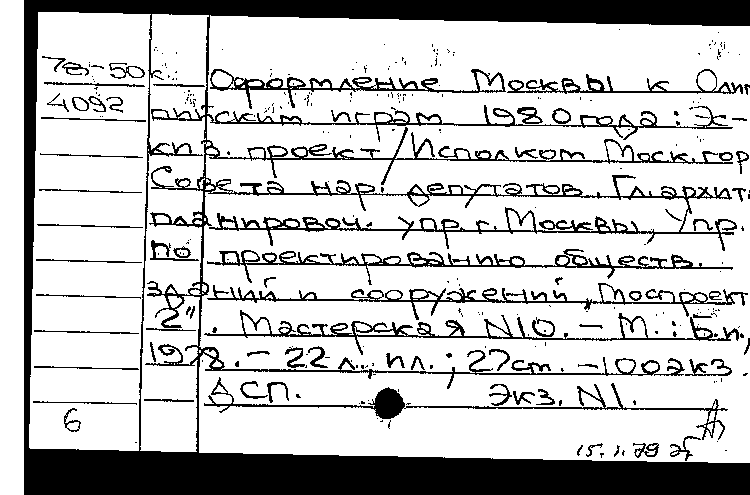 78-50к. Оформление Москвы к Олим
4092 пийским играм 1980 года: Эс-
киз. проект / Исполком Моск.гор
Совета нар. депутатов. Гл.архит
планировоч. упр. г. Москвы, Упр.
по проектированию обществ.
зданий и сооружений, Моспроект
2". Мастерская N10. – М.: Б.и.,
1978. – 22 л., ил.; 27см. – 100экз.
ДСП. Экз. N1.
6
15.1.79